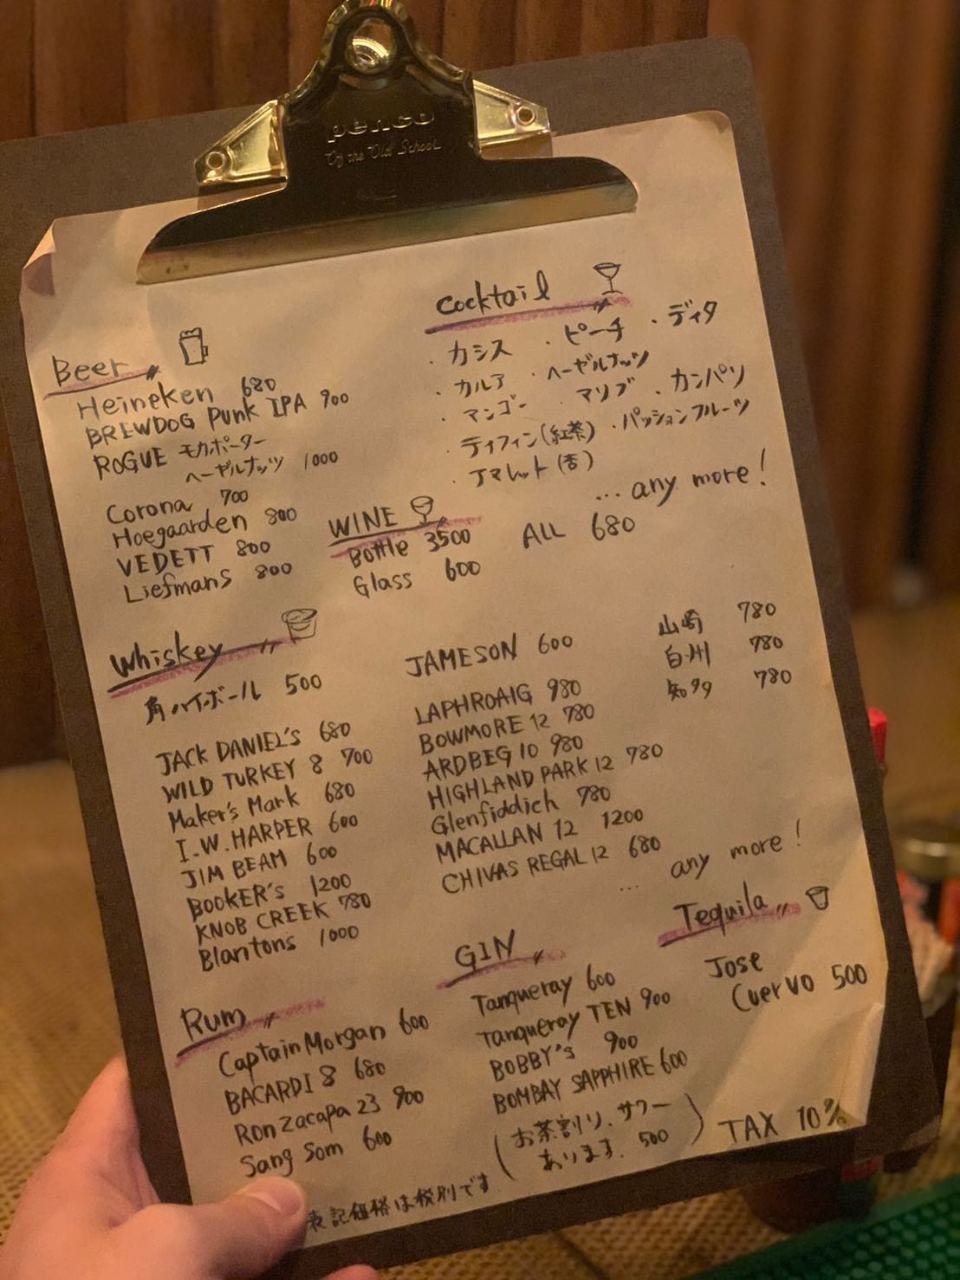 penco
By the Old School
Cocktail
・カシス ・ピーチ ・ディタ
・カルア ・ヘーゼルナッツ
・マンゴー ・マリブ ・カンパリ
・ティフィン(紅茶) ・パッションフルーツ
・アマレット(杏)
... any more!
ALL 680
Beer
Heineken 680
BREWDOG PUNK IPA 900
ROGUE モカポーター
ヘーゼルナッツ 1000
Corona 700
Hoegaarden 800
VEDETT 800
Liefmans 800
WINE
Bottle 3500
Glass 600
Whiskey
角ハイボール 500
JACK DANIEL'S 680
WILD TURKEY 8 700
Maker's Mark 680
I.W.HARPER 600
JIM BEAM 600
BOOKER'S 1200
KNOB CREEK 780
Blantons 1000
JAMESON 600
LAPHROAIG 980
BOWMORE 12 780
ARDBEG 10 980
HIGHLAND PARK 12 780
Glenfiddich 780
MACALLAN 12 1200
CHIVAS REGAL 12 680
山崎 780
白州 780
知多 780
... any more!
Rum
Captain Morgan 600
BACARDI 8 680
Ron Zacapa 23 900
Sang Som 600
GIN
Tanqueray 600
Tanqueray TEN 900
BOBBY'S 900
BOMBAY SAPPHIRE 600
(お茶割り、サワー
あります。500)
Tequila
Jose
Cuervo 500
TAX 10%
表記価格は税別です